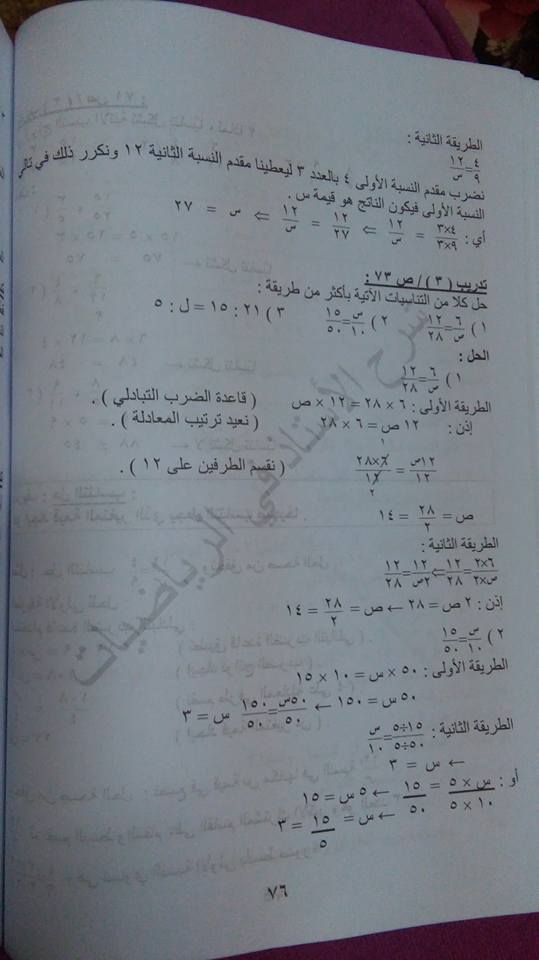 الطريقة الثانية :
٤/٩ = ١٢/س
نضرب مقدم النسبة الأولى ٤ بالعدد ٣ ليعطينا مقدم النسبة الثانية ١٢ ونكرر ذلك في تالي
النسبة الأولى فيكون الناتج هو قيمة س .
أي : ٣×٤/٣×٩ = ١٢/س ⇐ ١٢/٢٧ = ١٢/س ⇐ س = ٢٧
تدريب ( ٣ ) / ص ٧٣ :
حل كلا من التناسبات الآتية بأكثر من طريقة :
١ ) ٦/ص = ١٢/٢٨ ٢ ) س/١٠ = ١٥/٥٠ ٣ ) ٢١ : ١٥ = ل : ٥
الحل :
١ ) ٦/ص = ١٢/٢٨
الطريقة الأولى : ٦ × ٢٨ = ١٢ × ص ( قاعدة الضرب التبادلي ) .
إذن : ١٢ ص = ٦ × ٢٨ ( نعيد ترتيب المعادلة ) .
١٢ص/١٢ = ٢٨×٦/١٢ ( نقسم الطرفين على ١٢ ) .
ص = ٢٨/٢ = ١٤
الطريقة الثانية :
٢×٦/ص×٢ = ١٢/٢٨ ⇐ ١٢/٢ص = ١٢/٢٨
إذن : ٢ ص = ٢٨ ← ص = ٢٨/٢ = ١٤
٢ ) س/١٠ = ١٥/٥٠
الطريقة الأولى : ٥٠ × س = ١٠ × ١٥
٥٠ س = ١٥٠ ← ٥٠س/٥٠ = ١٥٠/٥٠ س = ٣
الطريقة الثانية : ٥÷١٥/٥÷٥٠ = س/١٠
← س = ٣
أو : س × ٥/١٠ × ٥ = ١٥/٥٠ ← ٥ س = ١٥
← س = ١٥/٥ = ٣
٧٦
شرح الأستاذ في الرياضيات